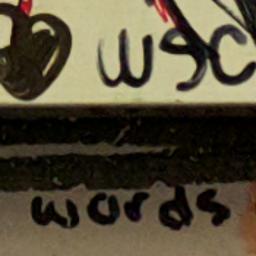 wsc
words